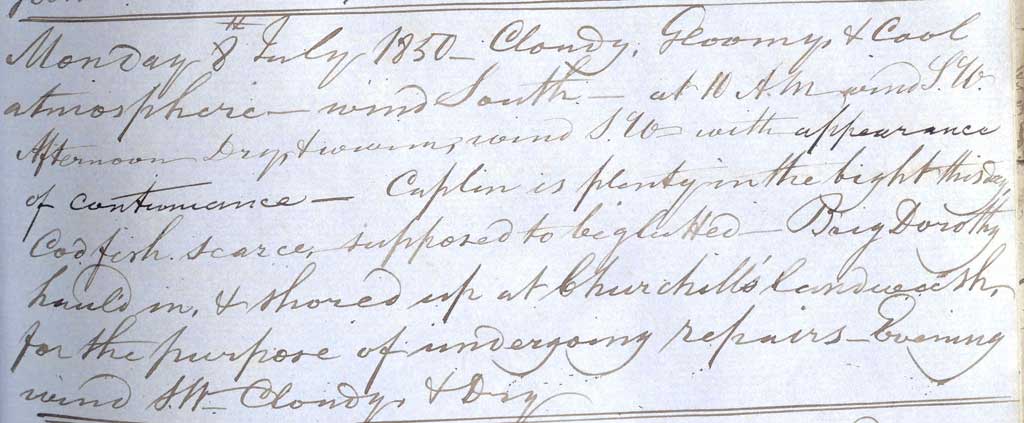 Monday 8th July 1850 - Cloudy, Gloomy, & Cool
atmosphere - wind South - at 10 A.M wind S.W.
Afternoon Dry, & warm, wind S.W - with appearance
of continuance - Caplin is plenty in the bight this day,
Cod fish scarce, supposed to be glutted - Brig Dorothy
haul'd in, & shored up at Churchill's landwash,
for the purpose of undergoing repairs - Evening
wind SW - Cloudy, & Dry